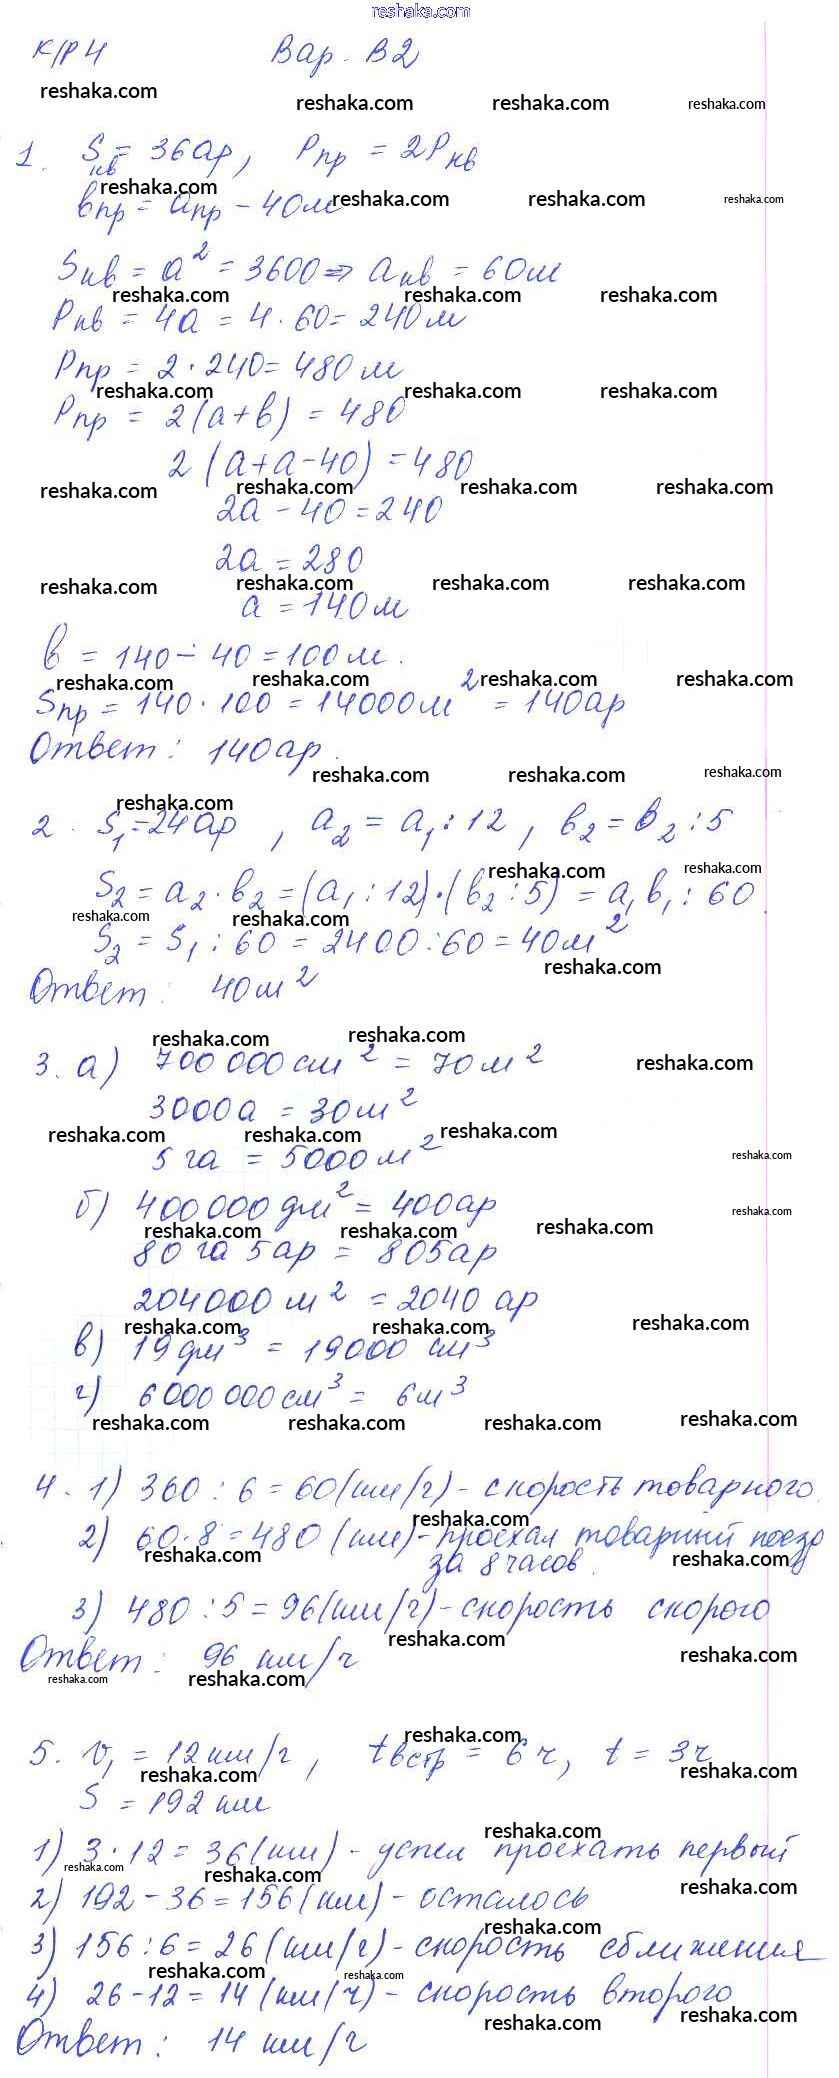 reshaka.com
К/Р 4 Вар. В2
1. Sкв = 36ар, Pпр = 2Pкв
bпр = aпр - 40м
Sкв = a² = 3600 ⇒ aкв = 60м
Pкв = 4a = 4 · 60 = 240м
Pпр = 2 · 240 = 480м
Pпр = 2(a+b) = 480
2(a+a-40) = 480
2a - 40 = 240
2a = 280
a = 140м
b = 140 - 40 = 100м.
Sпр = 140 · 100 = 14000м² = 140ар
Ответ: 140ар.
2. S₁=24ар, a₂ = a₁:12, b₂ = b₂:5
S₂ = a₂·b₂ = (a₁:12)·(b₂:5) = a₁b₁:60
S₂ = S₁:60 = 2400:60 = 40м²
Ответ: 40м²
3. а) 700 000см² = 70м²
3000а = 30м²
5га = 5000м²
б) 400 000дм² = 400ар
80га 5ар = 805ар
204000м² = 2040 ар
в) 19дм³ = 19000 см³
г) 6000 000см³ = 6м³
4. 1) 360 : 6 = 60(км/ч) - скорость товарного
2) 60·8 = 480 (км) - проехал товарный поезд
за 8 часов.
3) 480 : 5 = 96(км/ч) - скорость скорого
Ответ: 96 км/ч
5. v₁ = 12км/ч, tвстр = 6ч, t = 3ч
S = 192км
1) 3·12 = 36(км) - успел проехать первый
2) 192 - 36 = 156(км) - осталось
3) 156:6 = 26(км/ч) - скорость сближения
4) 26-12 = 14(км/ч) - скорость второго
Ответ: 14 км/ч